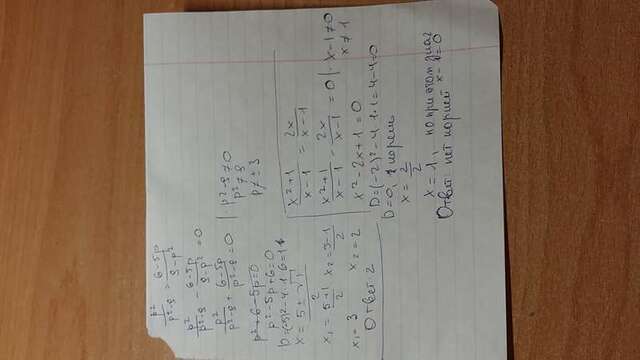 p²/p²-9 = 6-5p/9-p²
p²/p²-9 - 6-5p/9-p² = 0
p²/p²-9 + 6-5p/p²-9 = 0 | · p²-9≠0
p²≠9
p≠±3
p²+6-5p=0
p²-5p+6=0
x = 5±√1/2
x₁ = 5+1/2 x₂ = 5-1/2
x₁=3 x₂=2
Ответ 2
x²+1/x-1 = 2x/x-1
x²+1/x-1 - 2x/x-1 = 0 | · x-1≠0
x≠1
x²-2x+1=0
D=(-2)²-4·1·1=4-4=0
D=0, 1 корень
x=2/2
x=1, но при этом знач
x-1=0
Ответ: нет корней